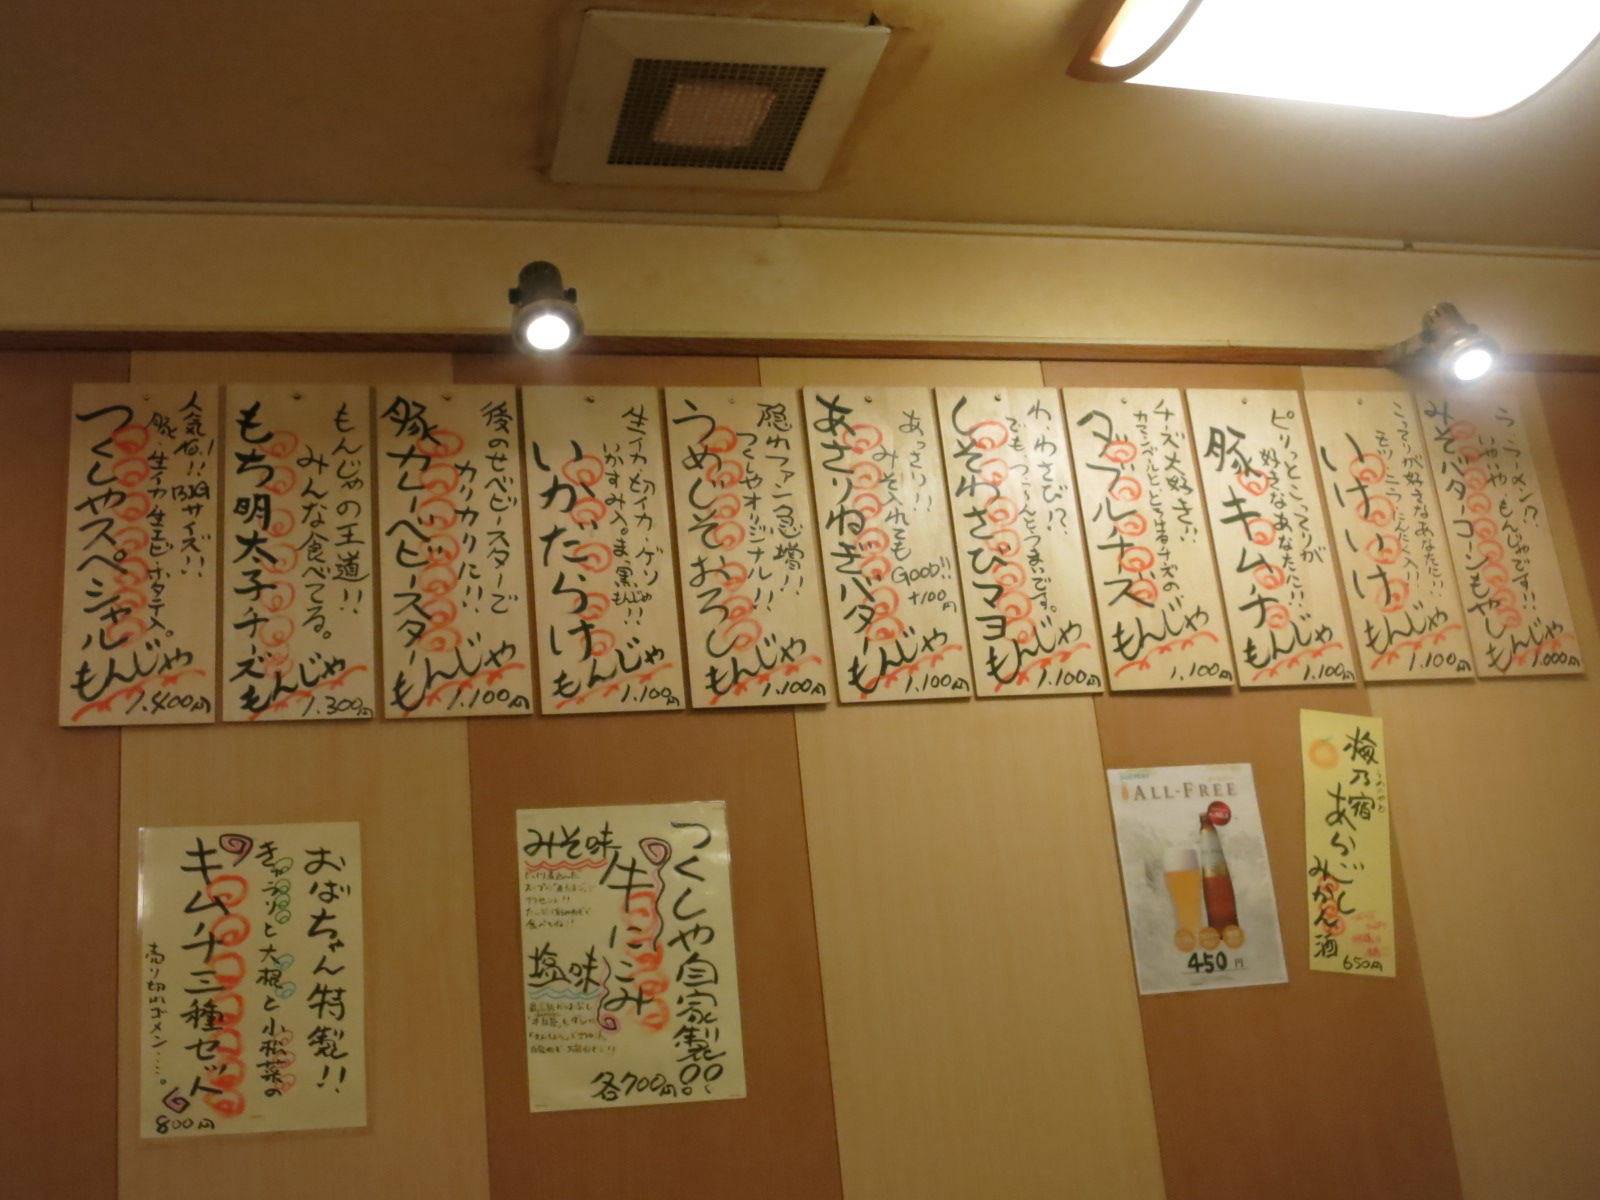 う・ラーメン!?
いやいや、もんじゃです!!
みそバターコーンもやし
もんじゃ
1.000円
こってりが好きなあなたに!!
いけいけ
もんじゃ
1.100円
ピリっとこってりが
好きなあなたに!!
豚キムチ
もんじゃ
1.100円
チーズ大好き!!
ダブルチーズ
もんじゃ
1.100円
わ、わさび!?
でも つ〜んとうまいです。
しそわさびマヨ
もんじゃ
1.100円
あっさり!!
みそ入れても
GOOD!!
+100円
あさりねぎバター
もんじゃ
1.100円
隠れファン急増!!
つくしやオリジナル!!
うめしそおろし
もんじゃ
1.100円
生イカ・切イカ・ゲソ
いかすみ入。ま、黒もんじゃ!!
いかだらけ
もんじゃ
1.100円
後のせベビースターで
カリカリに!!
豚カレーベビースター
もんじゃ
1.100円
もんじゃの王道!!
みんな食べてる。
もち明太子チーズ
もんじゃ
1.300円
人気No.1!!BIGサイズ!!
豚・生イカ・生エビ・ホタテ入。
つくしやスペシャル
もんじゃ
1.400円
梅乃宿
うめのやど
あらごし
みかん酒
650円
ALL-FREE
450円
つくしや自家製
牛にこみ
みそ味
塩味
各700円
おばちゃん特製!!
きゅうりと大根と小松菜の
キムチ三種セット
売り切れゴメン……。
800円